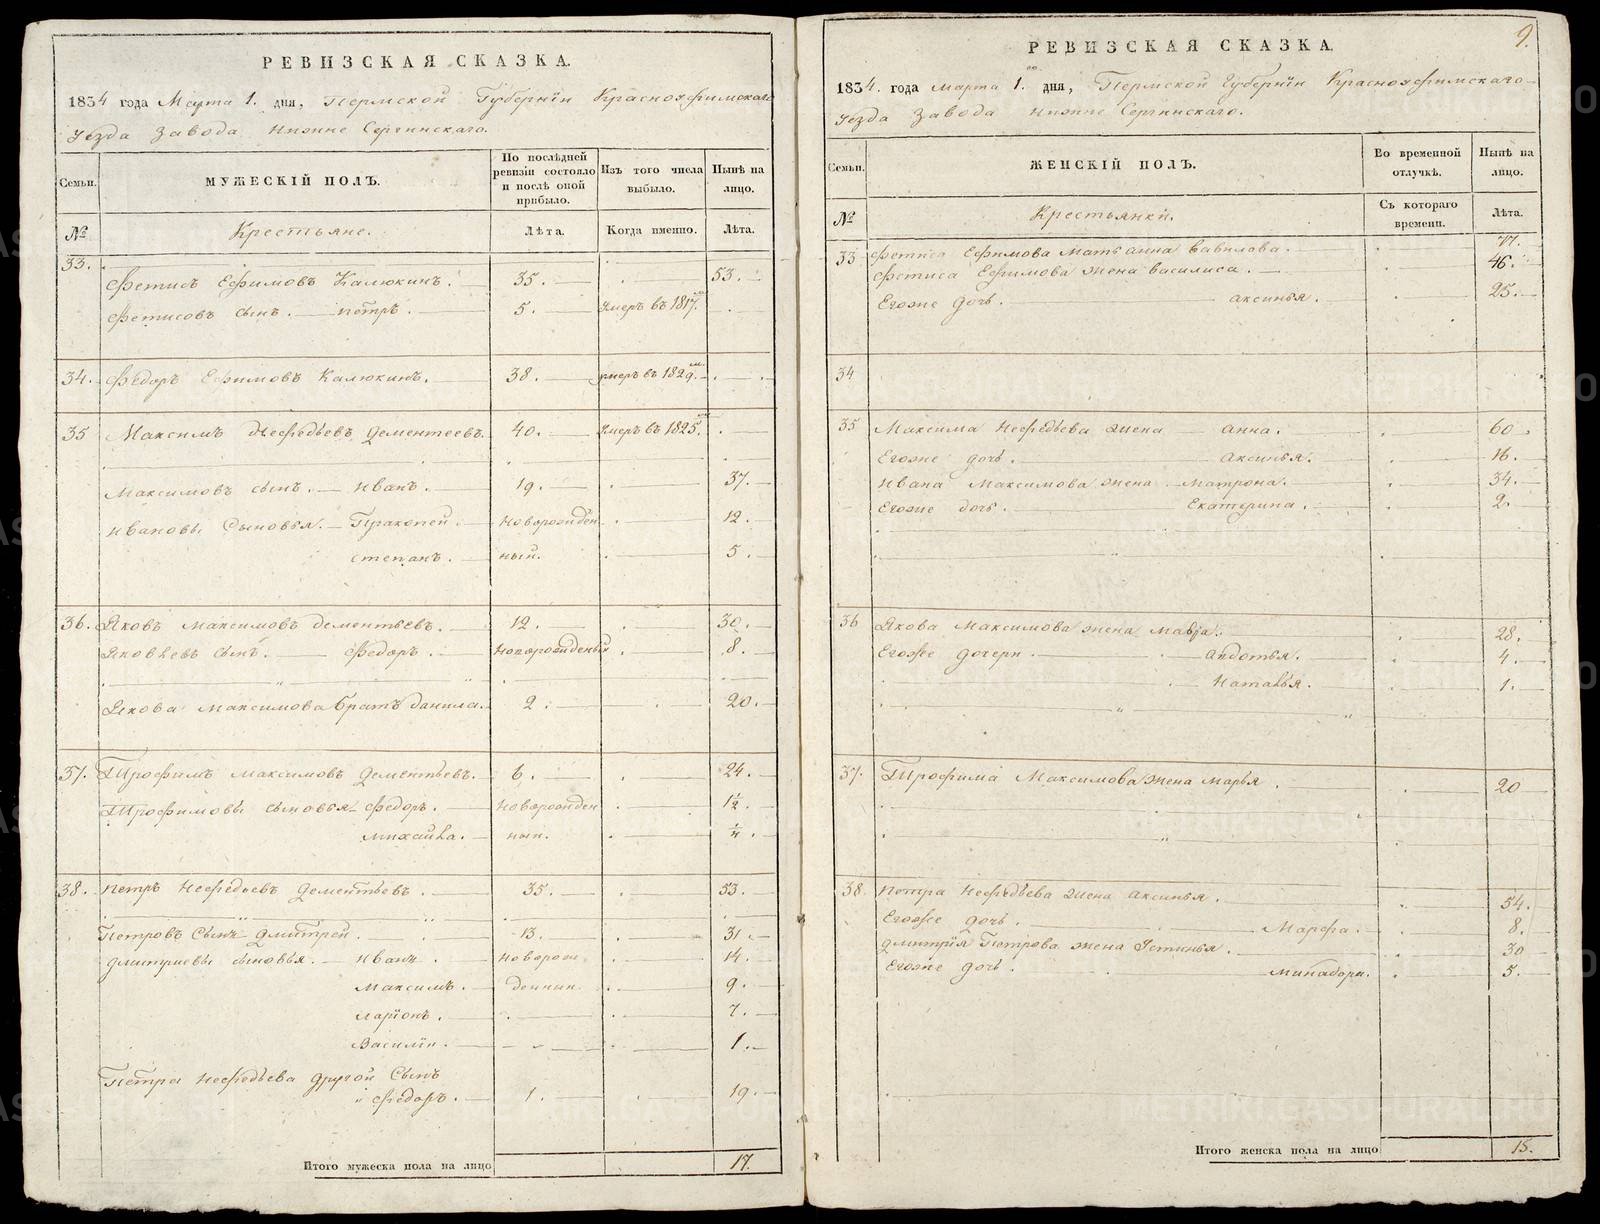 РЕВИЗСКАЯ СКАЗКА.
1834 года Марта 1. дня, Пермской Губернїи Красноуфимскаго
уезда Завода Нижне Сергинскаго.
Семьи. МУЖЕСКІЙ ПОЛЪ. По послѣдней ревизіи состояло и послѣ оной прибыло. Изъ того числа выбыло. Нынѣ на лицо.
№ Крестьяне. Лѣта. Когда именно. Лѣта.
33. Фетисъ Ефимовъ Калюкинъ. 35. 53.
Фетисовъ сынъ. Петръ. 5. умеръ въ 1817.
34. Федоръ Ефимовъ Калюкинъ. 38. умеръ въ 1829.
35 Максимъ Нефедьевъ Дементеевъ. 40. умеръ въ 1825.
Максимовъ сынъ. Иванъ. 19. 37.
Ивановы сыновья. Пракопей. новорожден 12.
степанъ. ный. 5.
36. Яковъ Максимовъ Дементьевъ. 12. 30.
Яковлевъ сынъ. Федоръ. новорожденный 8.
Якова Максимова братъ Данила. 2. 20.
37. Трофимъ Максимовъ Дементьевъ. 6. 24.
Трофимовы сыновья Федоръ. новорожден 1½
Михайла. ныи. ¼.
38. Петръ Нефедьевъ Дементьевъ. 35. 53.
Петровъ Сынъ Дмитрей. 13. 31.
Дмитриевы сыновья. Иванъ. новорож 14.
Максимъ. денныи. 9.
Ларїонъ. 7.
Василїи. 1.
Петра Нефедьева другой Сынъ
Федоръ. 1. 19.
Итого мужеска пола на лицо 17.
9.
РЕВИЗСКАЯ СКАЗКА.
1834. года марта 1. дня, Пермской Губернїи Красноуфимскаго
уезда Завода Нижне Сергинскаго.
Семьи. ЖЕНСКІЙ ПОЛЪ. Во временной отлучкѣ. Нынѣ на лицо.
№ Крестьянки. Съ котораго времени. Лѣта.
33 Фетиса Ефимова мать анна Вавилова. 77.
Фетиса Ефимова жена василиса. 46.
Егоже дочь. аксинья. 25.
34
35 Максима Нефедьева жена анна. 60.
Егоже дочь. Аксинья. 16.
Ивана Максимова жена Матрона. 34.
Егоже дочь. Екатерина. 2.
36 Якова Максимова жена Мавра. 28.
Егоже дочери. авдотья. 4.
Наталья. 1.
37. Трофима Максимова жена марья. 20
38. Петра Нефедьева жена аксинья. 54.
Егоже дочь. Марфа. 8.
Дмитрїя Петрова жена Устинья. 30
Егоже дочь. Минадора. 5.
Итого женска пола на лицо 15.